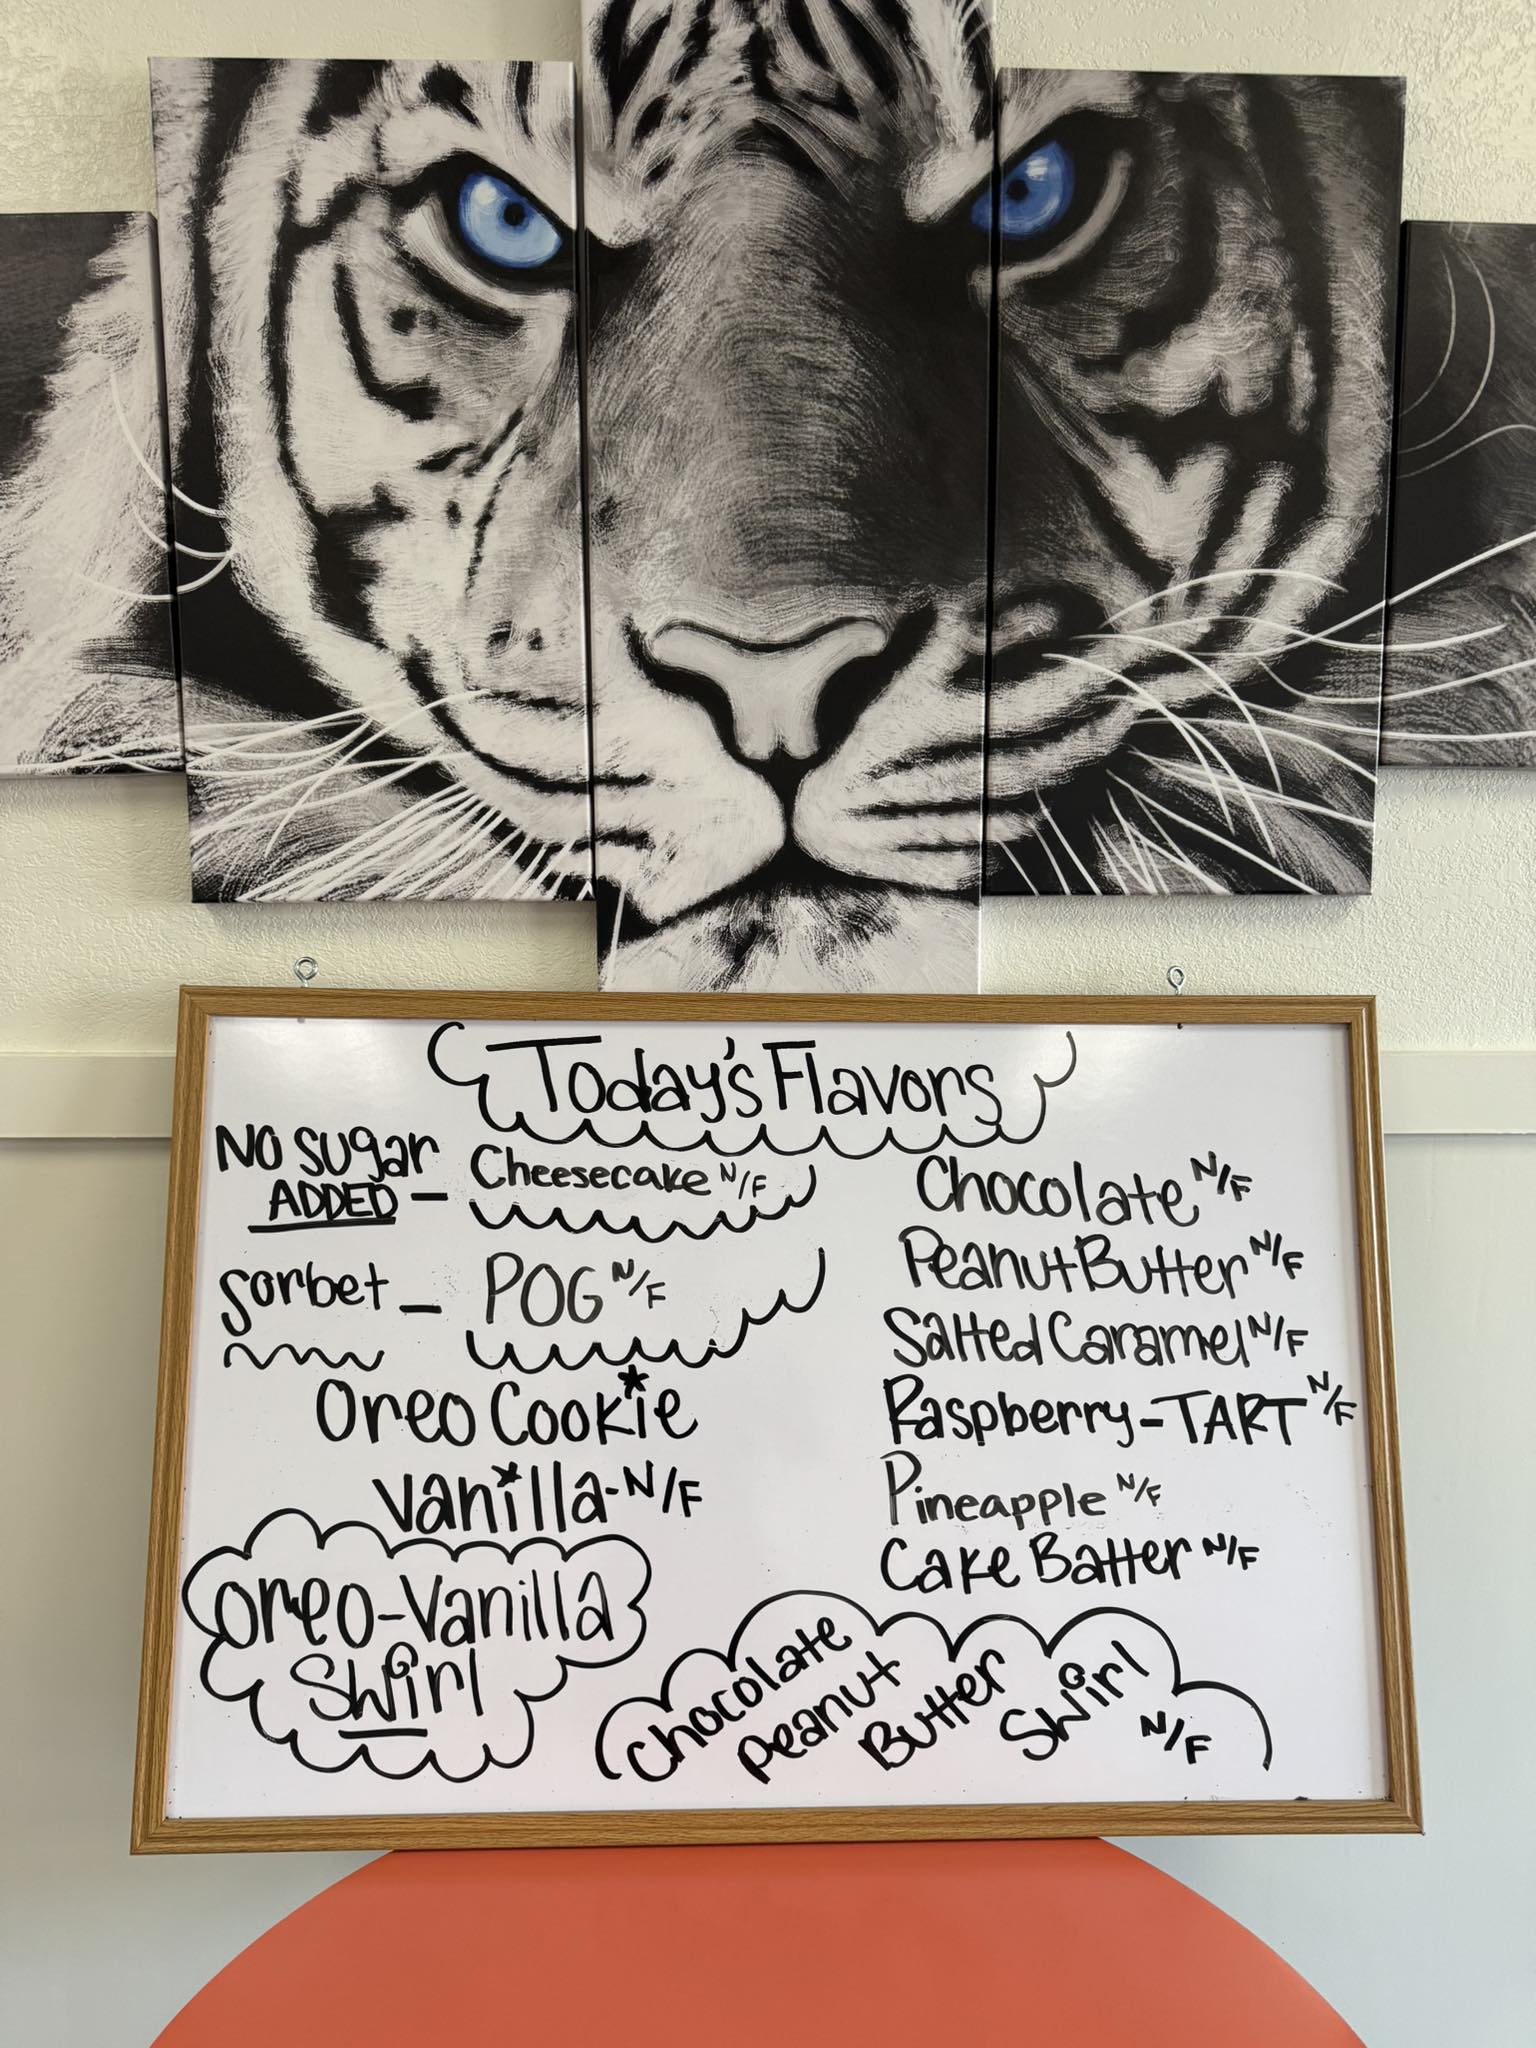 Today's Flavors
No Sugar
ADDED - Cheesecake N/F
Sorbet - POG N/F
Oreo Cookie
Vanilla-N/F
Oreo-Vanilla
Swirl
Chocolate N/F
Peanut Butter N/F
Salted Caramel N/F
Raspberry-TART N/F
Pineapple N/F
Cake Batter N/F
Chocolate
Peanut
Butter
Swirl
N/F